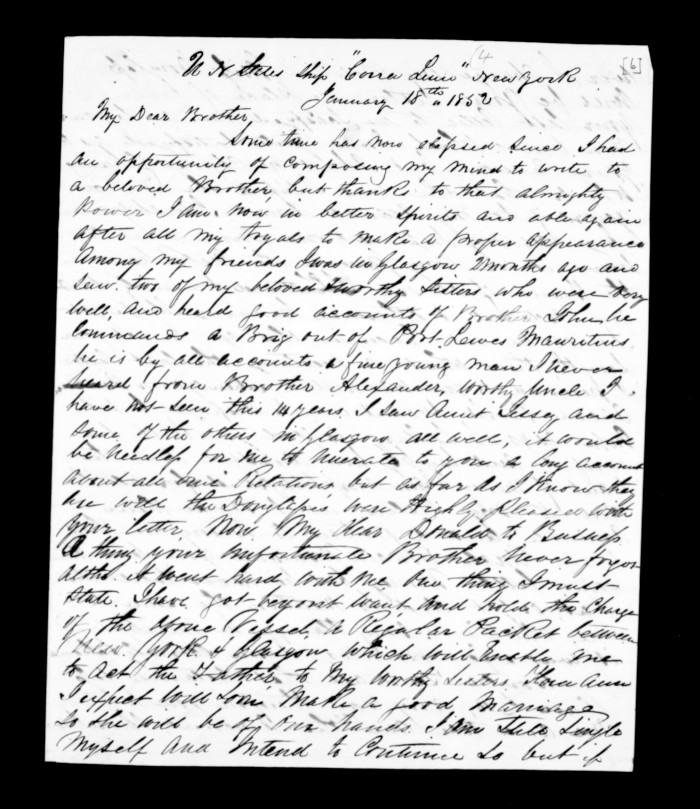 (4
[6]
U N States Ship "Corra Linn" New York
January 18th 1852
My Dear Brother,
Some time has now elapsed since I had
an opportunity of composing my mind to write to
a beloved Brother, but thanks to that almighty
Power I am now in better spirits and able again
after all my tryals to make a proper appearance
Among my friends I was in Glasgow 2 months ago and
saw two of my beloved worthy Sisters who were very
well, and heard good accounts of Brother John he
Commands a Brig out of Port Lewes Mauritius
he is by all accounts a fine young man I never
heard from Brother Alexander, worthy Uncle J.
have not seen this 14 years, I saw Aunt Jessey and
some of the others in Glasgow all well, it would
be needless for me to nuerate to you a long account
about all our Relations but as far as I know they
are well the were Highly pleased with
your letter Now My dear Donald to Business
A thing your unfortunate Brother never forgot
altho it went hard with me One thing I must
State. I have got beyont want and hold the Charge
of the above Vessel, a Regular Packet between
New York & Glasgow which will Enable me
to act the Father to My worthy Sisters Ann
I expect will soon make a good Marriage
So she will be of our hands. I am still Single
Myself and Intend to Continue So but if